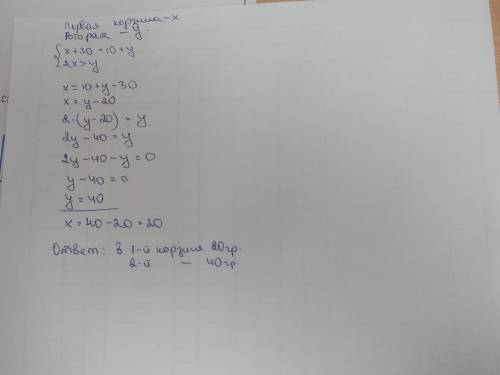 Первая корзина - x
Вторая - y.
{ x+30=10+y
2x>y
x=10+y-30
x=y-20
2·(y-20)=y
2y-40=y
2y-40-y=0
y-40=0
y=40
x=40-20=20
Ответ: в 1-й корзине 20гр.
2-й — 40гр.